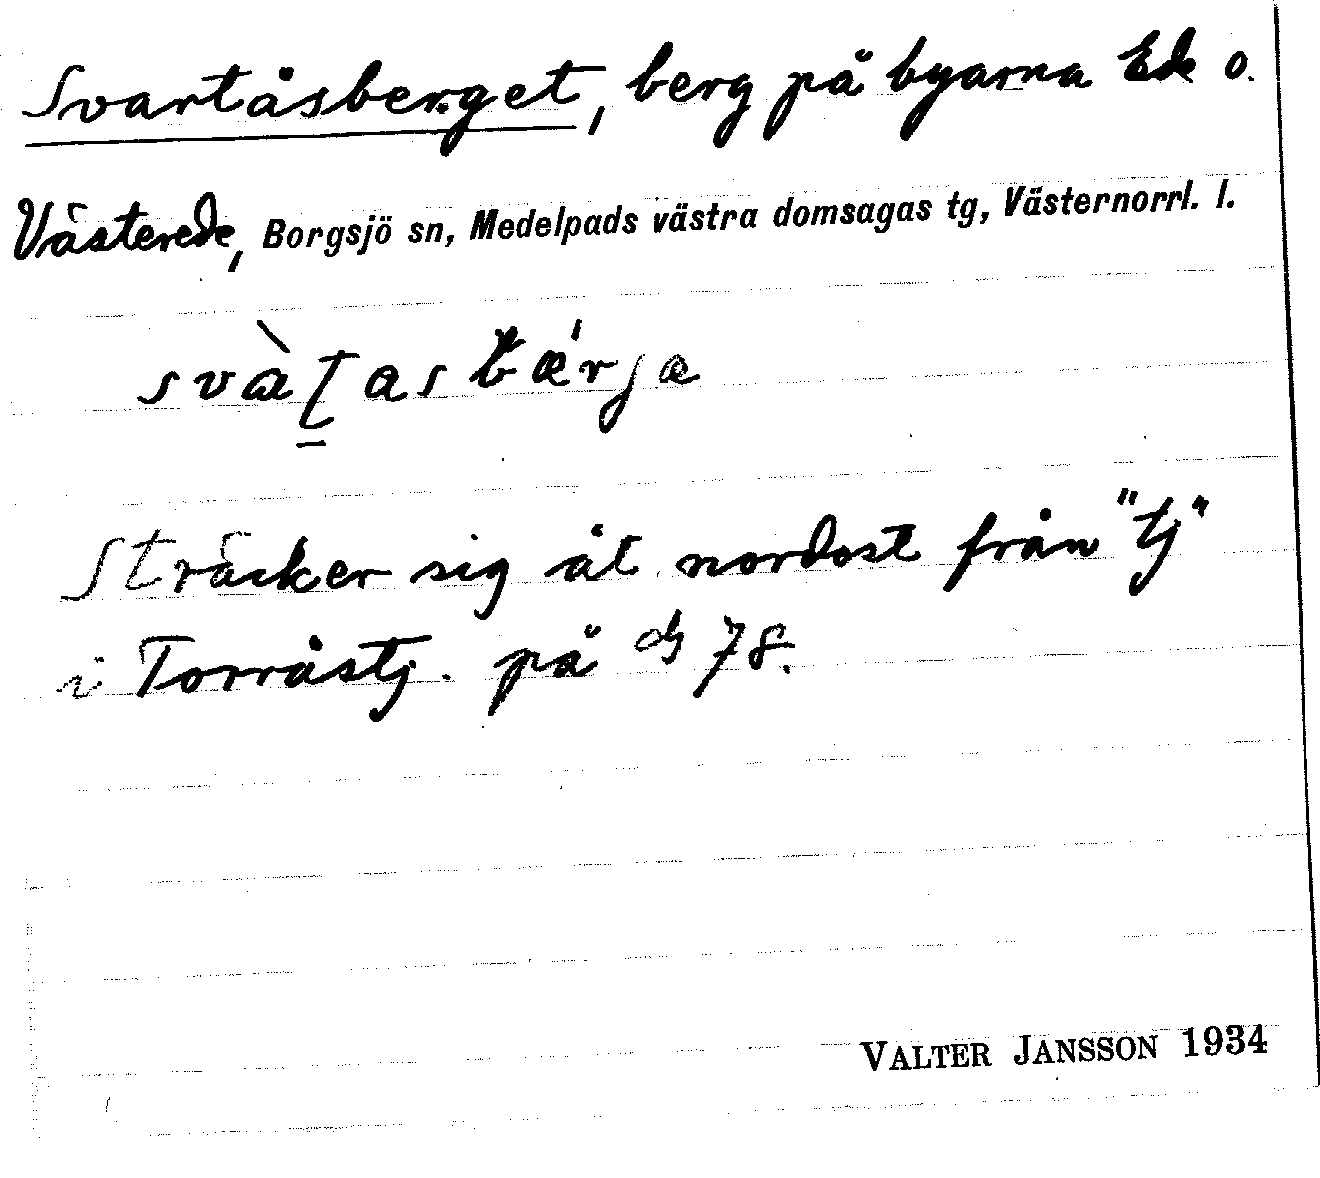 Svartåsberget, berg på byarna Ede o.
Västerede, Borgsjö sn, Medelpads västra domsagas tg, Västernorrl. l.
Sträcker sig åt nordost från "tj"
i Torråstj. på 78.
VALTER JANSSON 1934